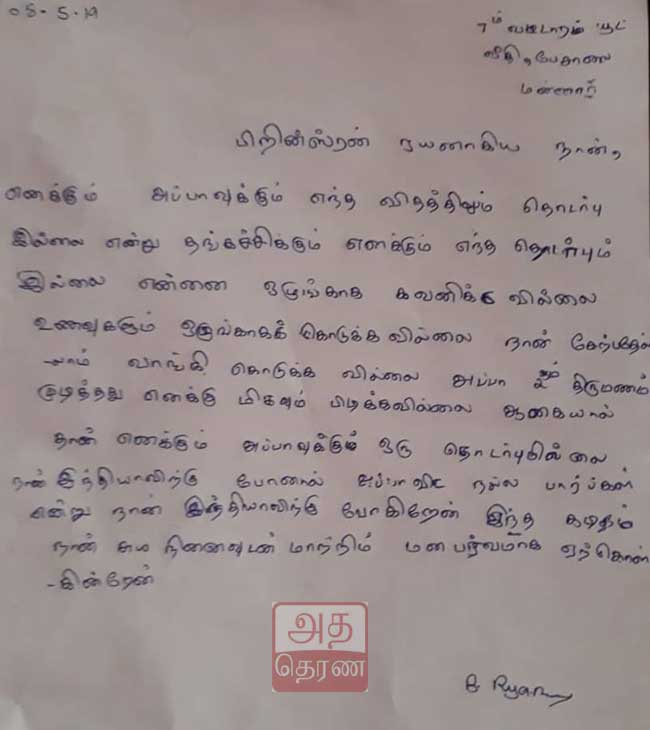 05-5-19
7ம் வட்டாரம் யூட்
வீதி, பேசாலை
மன்னார்
பிறின்ஸ்ரன் றயனாகிய நான்,
எனக்கும் அப்பாவுக்கும் எந்த விதத்திலும் தொடர்பு
இல்லை என்று தங்கச்சிக்கும் எனக்கும் எந்த தொடர்பும்
இல்லை என்னை ஒழுங்காக கவனிக்க வில்லை
உணவுகளும் ஒழுங்காகக் கொடுக்கவில்லை நான்
வாங்கி கொடுக்க வில்லை அப்பா 2ம் திருமணம்
முடித்தது எனக்கு மிகவும் பிடிக்கவில்லை ஆகையால்
தான் எனக்கும் அப்பாவுக்கும் ஒரு தொடர்புமில்லை
நான் இந்தியாவிற்கு போனால் அப்பாவிட நல்ல பார்ப்கள்
என்று நான் இந்தியாவிற்கு போகிறேன் இந்த கடிதம்
நான் சுய நினைவுடன் மாற்றிம் மனபூர்வமாக ஏற்கொள்
-கின்றேன்
அத
தெரண
B Ryan